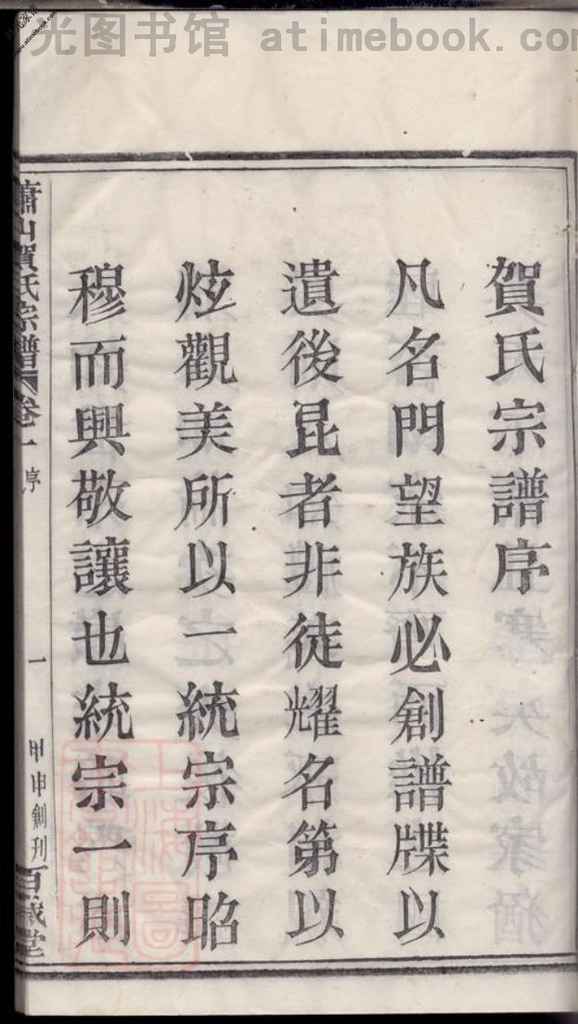 光图书馆 atimebook.com
賀氏宗譜序
凡名門望族必創譜牒以
遺後昆者非徒耀名第以
炫觀美所以一統宗序昭
穆而興敬讓也統宗一則
蕭山賀氏宗譜 卷一 序 一 甲申創刊 百歲堂